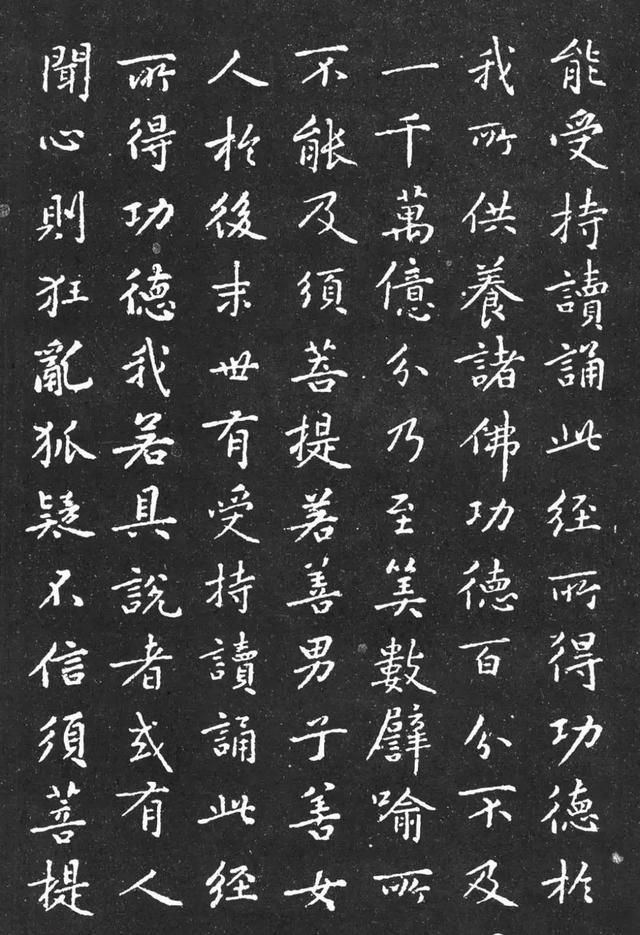 能受持讀誦此経所得功德於
我所供養諸佛功德百分不及
一千萬億分乃至筭數譬喻所
不能及須菩提若善男子善女
人於後末世有受持讀誦此経
所得功德我若具說者或有人
聞心則狂亂狐疑不信須菩提